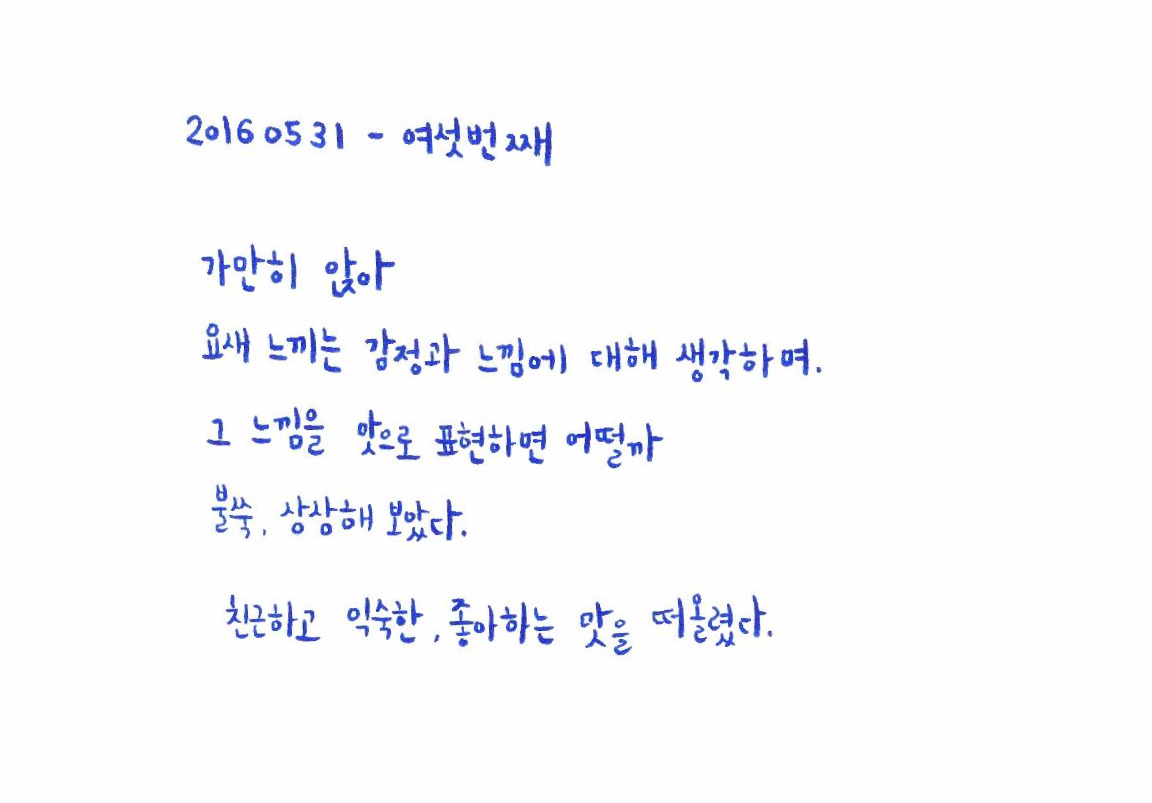 20160531 - 여섯번째
가만히 앉아
요새 느끼는 감정과 느낌에 대해 생각하며.
그 느낌을 맛으로 표현하면 어떨까
불쑥, 상상해 보았다.
친근하고 익숙한, 좋아하는 맛을 떠올렸다.